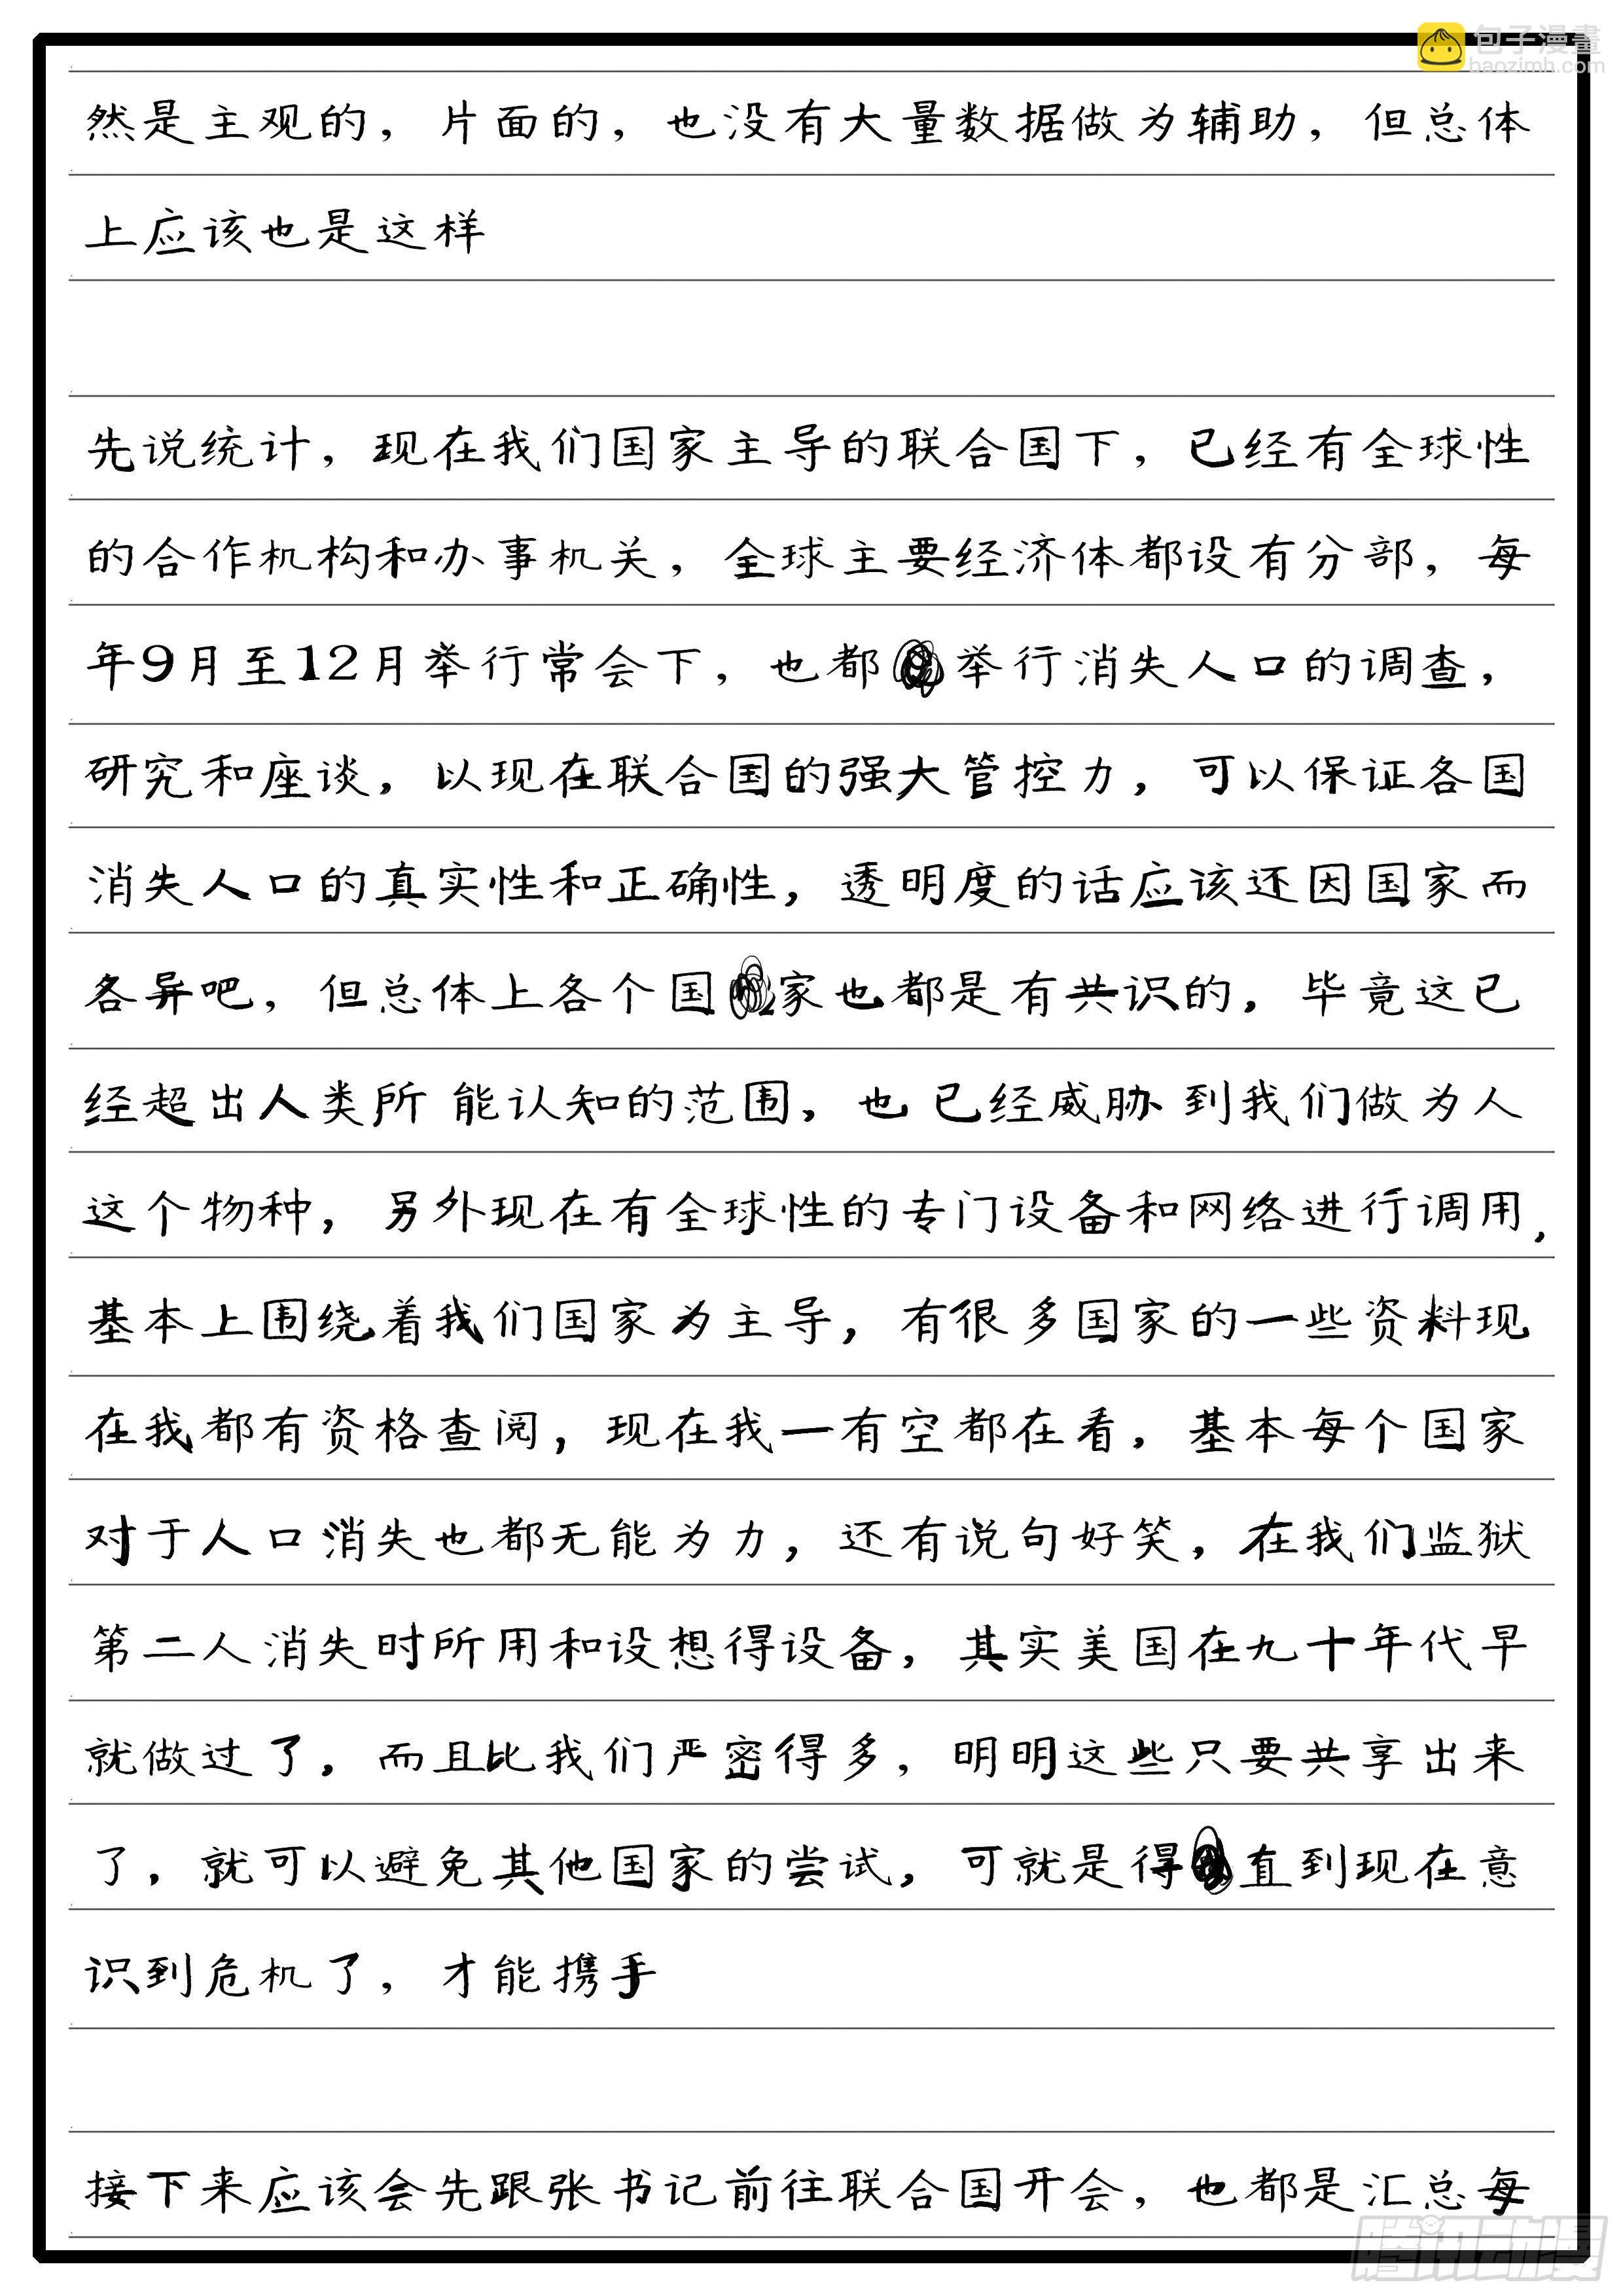 包子漫畫
baozimh.com
然是主观的，片面的，也没有大量数据做为辅助，但总体
上应该也是这样
先说统计，现在我们国家主导的联合国下，已经有全球性
的合作机构和办事机关，全球主要经济体都设有分部，每
年9月至12月举行常会下，也都举行消失人口的调查，
研究和座谈，以现在联合国的强大管控力，可以保证各国
消失人口的真实性和正确性，透明度的话应该还因国家而
各异吧，但总体上各个国家也都是有共识的，毕竟这已
经超出人类所能认知的范围，也已经威胁到我们做为人
这个物种，另外现在有全球性的专门设备和网络进行调用，
基本上围绕着我们国家为主导，有很多国家的一些资料现
在我都有资格查阅，现在我一有空都在看，基本每个国家
对于人口消失也都无能为力，还有说句好笑，在我们监狱
第二人消失时所用和设想得设备，其实美国在九十年代早
就做过了，而且比我们严密得多，明明这些只要共享出来
了，就可以避免其他国家的尝试，可就是得直到现在意
识到危机了，才能携手
接下来应该会先跟张书记前往联合国开会，也都是汇总每
腾讯动漫